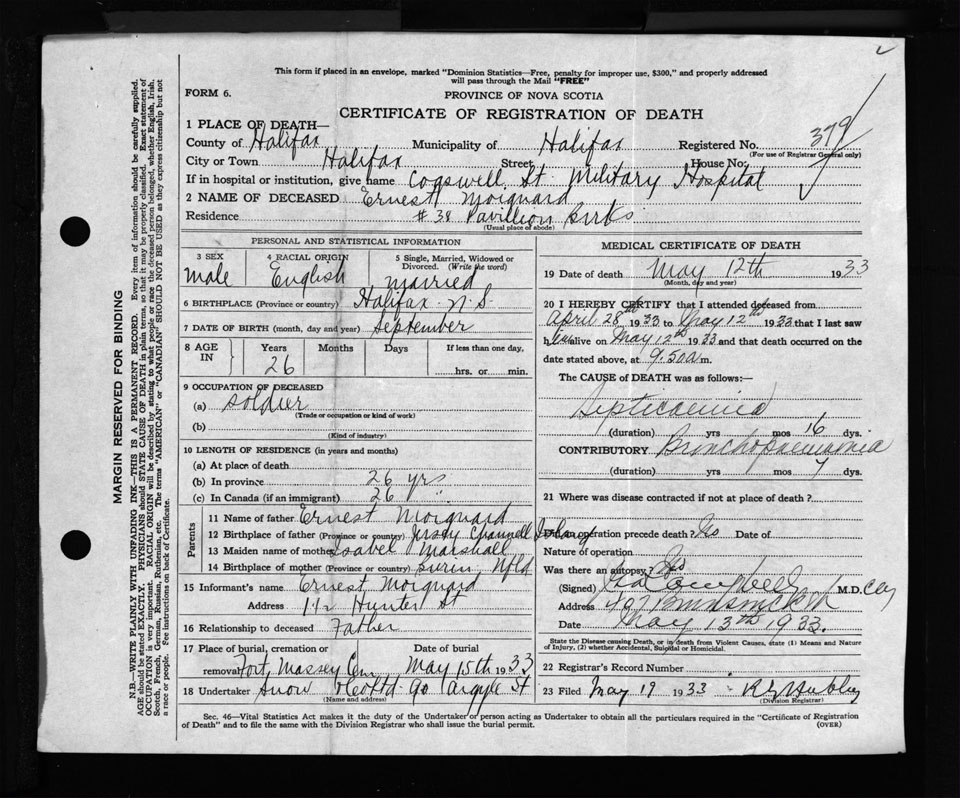 This form if placed in an envelope, marked "Dominion Statistics—Free, penalty for improper use, $300," and properly addressed
will pass through the Mail "FREE"
FORM 6.
PROVINCE OF NOVA SCOTIA
CERTIFICATE OF REGISTRATION OF DEATH
1 PLACE OF DEATH—
County of Halifax Municipality of Halifax Registered No. 379
(For use of Registrar General only)
City or Town Halifax Street House No.
If in hospital or institution, give name Cogswell St Military Hospital
2 NAME OF DECEASED Ernest Moignard
Residence # 38 Pavillion Brks
(Usual place of abode)
PERSONAL AND STATISTICAL INFORMATION
3 SEX 4 RACIAL ORIGIN 5 Single, Married, Widowed or
Divorced. (Write the word)
male English married
6 BIRTHPLACE (Province or country) Halifax N.S.
7 DATE OF BIRTH (month, day and year) September
8 AGE IN Years Months Days If less than one day,
26 hrs. or min.
9 OCCUPATION OF DECEASED
(a) soldier
(Trade or occupation or kind of work)
(b)
(Kind of industry)
10 LENGTH OF RESIDENCE (in years and months)
(a) At place of death
(b) In province 26 yrs
(c) In Canada (if an immigrant) 26 "
Parents
11 Name of father Ernest Moignard
12 Birthplace of father (Province or country) Jersey Channell Island
13 Maiden name of mother Isabel Marshall
14 Birthplace of mother (Province or country) Burin, Nfld
15 Informant's name Ernest Moignard
Address Hunter St
16 Relationship to deceased Father
17 Place of burial, cremation or removal Date of burial
Fort Massey Cem May 15th 1933
18 Undertaker Snow & Co Ltd 90 Argyle St
(Name and address)
MEDICAL CERTIFICATE OF DEATH
19 Date of death May 12th 1933
(Month, day and year)
20 I HEREBY CERTIFY that I attended deceased from
April 28th 1933 to May 12th 1933 that I last saw
him alive on May 12th 1933 and that death occurred on the
date stated above, at 9.50 a m.
The CAUSE of DEATH was as follows:—
Septicaemia
(duration) yrs mos 16 dys.
CONTRIBUTORY Bronchopneumonia
(duration) yrs mos 7 dys.
21 Where was disease contracted if not at place of death?
Did an operation precede death? No Date of
Nature of operation
Was there an autopsy?
(Signed) Campbell M.D.
Address Brunswick St
Date May 13th 1933.
State the Disease causing Death, or in death from Violent Causes, state (1) Means and Nature
of Injury, (2) whether Accidental, Suicidal or Homicidal.
22 Registrar's Record Number
23 Filed May 19 1933
(Division Registrar)
Sec. 46—Vital Statistics Act makes it the duty of the Undertaker or person acting as Undertaker to obtain all the particulars required in the "Certificate of Registration
of Death" and to file the same with the Division Registrar who shall issue the burial permit.
(OVER)
MARGIN RESERVED FOR BINDING
N.B.—WRITE PLAINLY WITH UNFADING INK—THIS IS A PERMANENT RECORD. Every item of information should be carefully supplied.
AGE should be stated EXACTLY. PHYSICIANS should STATE CAUSE OF DEATH in plain terms, so that it may be properly classified. Exact statement of
OCCUPATION is very important. RACIAL ORIGIN will be described by stating to what people or race the deceased person belonged, whether English, Irish,
Scotch, French, German, Russian, Ruthenian, etc. The terms "AMERICAN" or "CANADIAN" SHOULD NOT BE USED as they express citizenship but not
a race or people. See instructions on back of Certificate.